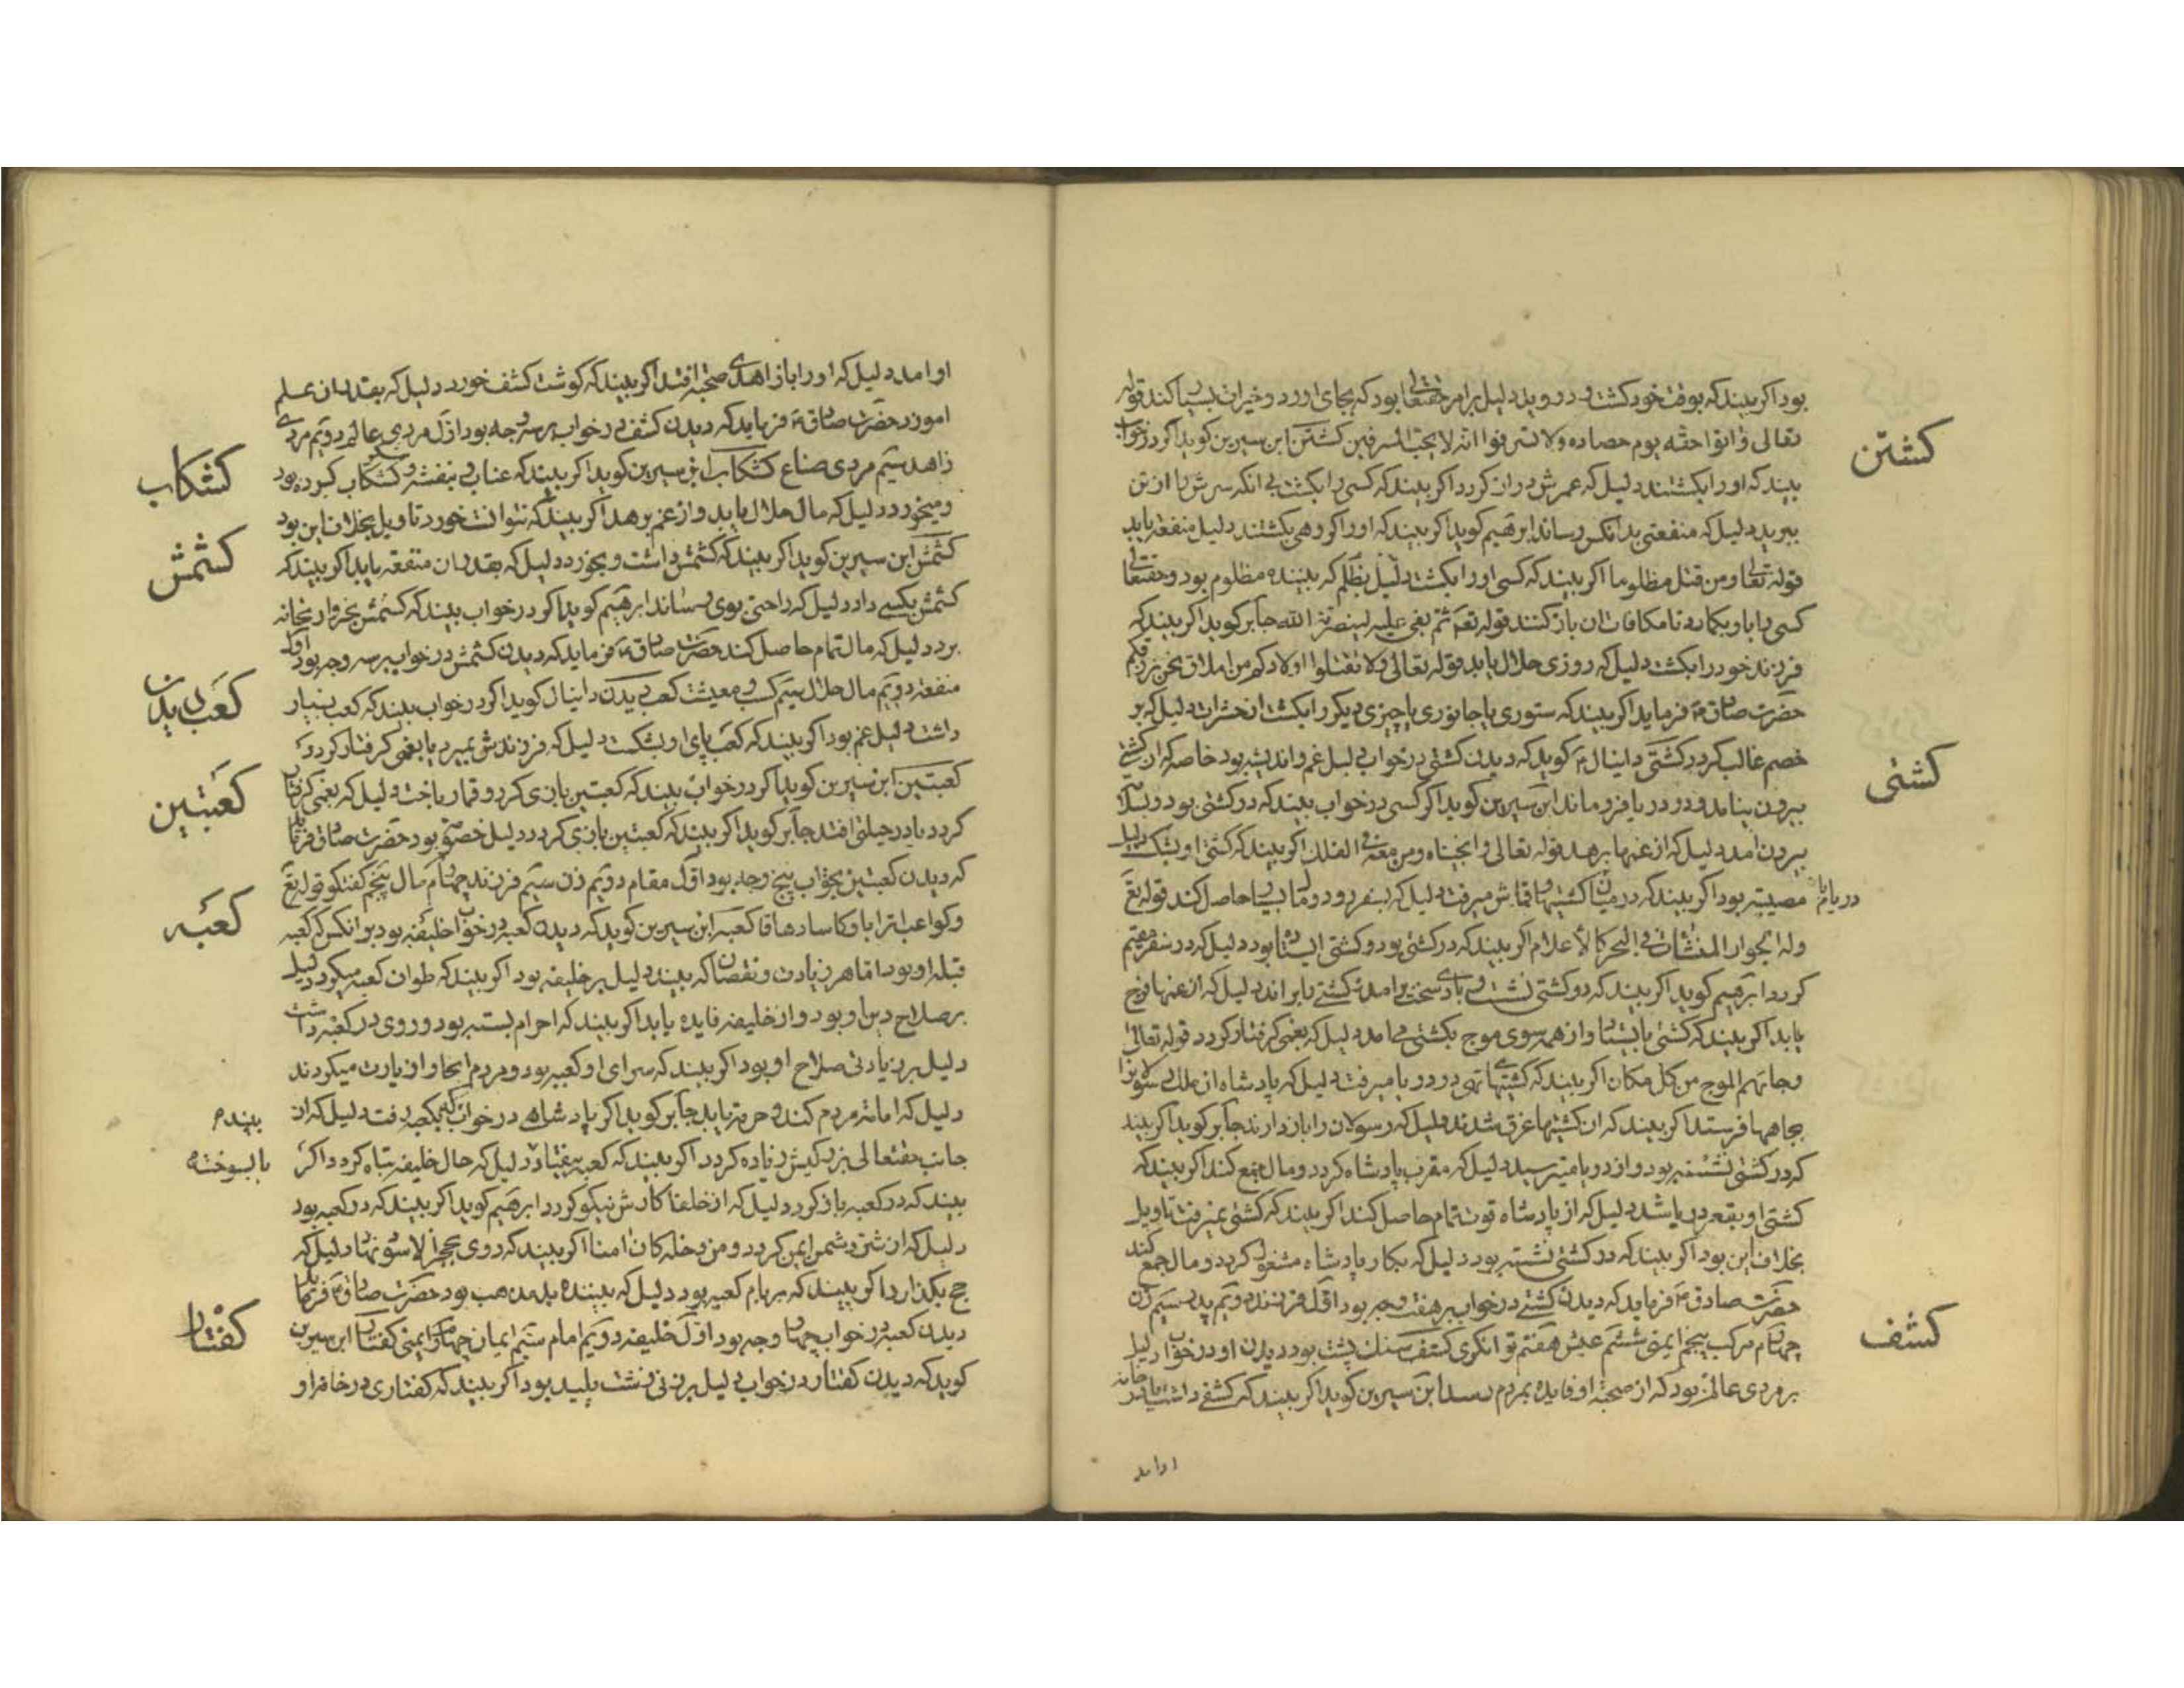 بود اکر بیند که بوقت خود کشت و دروید دلیل برامر حقتعالی بود که بجای اورد و خیرات بسیار کند قوله
تعالی واتوا حقه یوم حصاده ولا تسرفوا انه لا یحب المسرفین کشتن ابن سیرین کوید اکر در خواب
کشتن
بیند که اورا بکشتند دلیل که عمرش دراز کردد اکر بیند که کسی را بکشت بی انکه سرش را از تن
ببرید دلیل که منفعتی بدانکس رساند ابرهیم کوید اکر بیند که اورا کروهی بکشتند دلیل منفعه یابد
قوله تعالی ومن قتل مظلوما اکر بیند که کسی اورا بکشت دلیل بظلم که بیننده مظلوم بود و حقتعالی
کسی را باو بکمارد تا مکافات ان باز کنند قوله تع ثم بغی علیه لینصرنه الله جابر کوید اکر بیند که
فرزند خود را بکشت دلیل که روزی حلال یابد قوله تعالی ولا تقتلوا اولادکم من املاق نحن نرزقکم
حضرت صادق فرماید اکر بیند که ستوری یا جانوری یا چیزی دیکر را بکشت از حشرات دلیل که بر
خصم غالب کردد کشتی دانیال کوید که دیدن کشتی در خواب دلیل غم و اندیشه بود خاصه که از کشتی
کشتی
بیرون نیامد و در دریا فرو ماند ابن سیرین کوید اکر کسی در خواب بیند که در کشتی بود و بسلامت
بیرون امد دلیل که از غمها برهد قوله تعالی وانجیناه ومن معه فی الفلک اکر بیند که کشتی او بشکست دلیل
مصیبت بود اکر بیند که در میان کشتیها قماش میرفت دلیل که بسفر رود و مال بسیار حاصل کند قوله تع
وله الجوار المنشات فی البحر کالاعلام اکر بیند که در کشتی بود و کشتی ایستاده بود دلیل که در سفر مقیم
کردد ابرهیم کوید اکر بیند که در کشتی نشست و بادی سخت برامد و کشتی را براند دلیل که از غمها فرج
یابد اکر بیند که کشتی بایستاد و از همه سوی موج بکشتی می امد دلیل که بغمی کرفتار کردد قوله تعالی
وجائهم الموج من کل مکان اکر بیند که کشتیهای تهی در دریا میرفت دلیل که پادشاه از ملک رسولانرا
بجاهها فرستد اکر بیند که ان کشتیها غرق شدند دلیل که رسولان را باز دارند جابر کوید اکر بیند
که در کشتی نشسته بود و از دریا میترسید دلیل که مقرب پادشاه کردد و مال جمع کند اکر بیند که
کشتی او بقعر دریا شد دلیل که از پادشاه قوت تمام حاصل کند اکر بیند که کشتی نمیرفت تاویل
بخلاف این بود اکر بیند که در کشتی نشسته بود دلیل که بکار پادشاه مشغول کردد و مال جمع کند
حضرت صادق فرماید که دیدن کشتی در خواب بر هفت وجه بود اول فرزند دویم پدر سیم زن
چهارم مرکب پنجم ایمنی ششم عیش هفتم توانکری کشف سنک پشت بود دیدن او در خواب دلیل
کشف
بر مردی عالم بود که از صحبت او فایده بمردم رسد ابن سیرین کوید اکر بیند که کشفی داشت یا در خانه
او امد
او امد دلیل که اورا با زاهدی صحبت افتد اکر بیند که کوشت کشف خورد دلیل که بقدر ان علم
اموزد حضرت صادق فرماید که دیدن کشف در خواب بر سه وجه بود اول مردی عالم دویم مردی
زاهد سیم مردی صناع کشکاب ابن سیرین کوید اکر بیند که عناب و بنفشه و کشکاب کرده بود
کشکاب
و میخورد دلیل که مال حلال یابد و از غم برهد اکر بیند که نتوانست خورد تاویل بخلاف این بود
کشمش ابن سیرین کوید اکر بیند که کشمش داشت و بخورد دلیل که بقدر ان منفعه یابد اکر بیند که
کشمش
کشمش بکسی داد دلیل که راحتی بوی رساند ابرهیم کوید اکر در خواب بیند که کشمش بخروار بخانه
برد دلیل که مال تمام حاصل کند حضرت صادق فرماید که دیدن کشمش در خواب بر سه وجه بود اول
منفعه دویم مال حلال سیم کسب و معیشت کعب دیدن دانیال کوید اکر در خواب بیند که کعب بسیار
کعب دیدن
داشت دلیل غم بود اکر بیند که کعب پای او بشکست دلیل که فرزندش بمیرد یا بغمی کرفتار کردد
کعبتین ابن سیرین کوید اکر در خواب بیند که کعبتین بازی کرد و قمار باخت دلیل که بغمی کرفتار
کعبتین
کردد یا در حیلتی افتد جابر کوید اکر بیند که کعبتین بازی کرد دلیل خصومت بود حضرت صادق فرماید
که دیدن کعبتین بخواب پنج وجه بود اول مقام دویم زن سیم فرزند چهارم مال پنجم کفتکو قوله تع
وکواعب اترابا وکاسا دهاقا کعبه ابن سیرین کوید که دیدن کعبه در خواب خلیفه بود بر انکس که کعبه
کعبه
قبله او بود اما هر زیادت و نقصان که بیند دلیل بر خلیفه بود اکر بیند که طواف کعبه میکرد دلیل
بر صلاح دین او بود و از خلیفه فایده یابد اکر بیند که احرام بسته بود و روی در کعبه داشت
دلیل بر زیادتی صلاح او بود اکر بیند که سرای او کعبه بود و مردم انجا اورا زیارت میکردند
دلیل که امانه مردم کند و حرمة یابد جابر کوید اکر پادشاهی در خواب که بکعبه رفت دلیل که از
بیند م
جانب حقتعالی نزدیکیش زیاده کردد اکر بیند که کعبه بیفتاد دلیل که حال خلیفه تباه کردد اکر
یا بسوخته
بیند که در کعبه باز کرد دلیل که از خلفا کارش نیکو کردد ابرهیم کوید اکر بیند که در کعبه بود
دلیل که از شر دشمن ایمن کردد ومن دخله کان امنا اکر بیند که روی بحجر الاسود نهاد دلیل که
حج بکذارد اکر بیند که بر بام کعبه بود دلیل که بیننده بد مذهب بود حضرت صادق فرماید
دیدن کعبه در خواب چهار وجه بود اول خلیفه دویم امام سیم ایمان چهارم ایمنی کفتار ابن سیرین
کفتار
کوید که دیدن کفتار در خواب دلیل بر زنی زشت پلید بود اکر بیند که کفتاری در خانه او